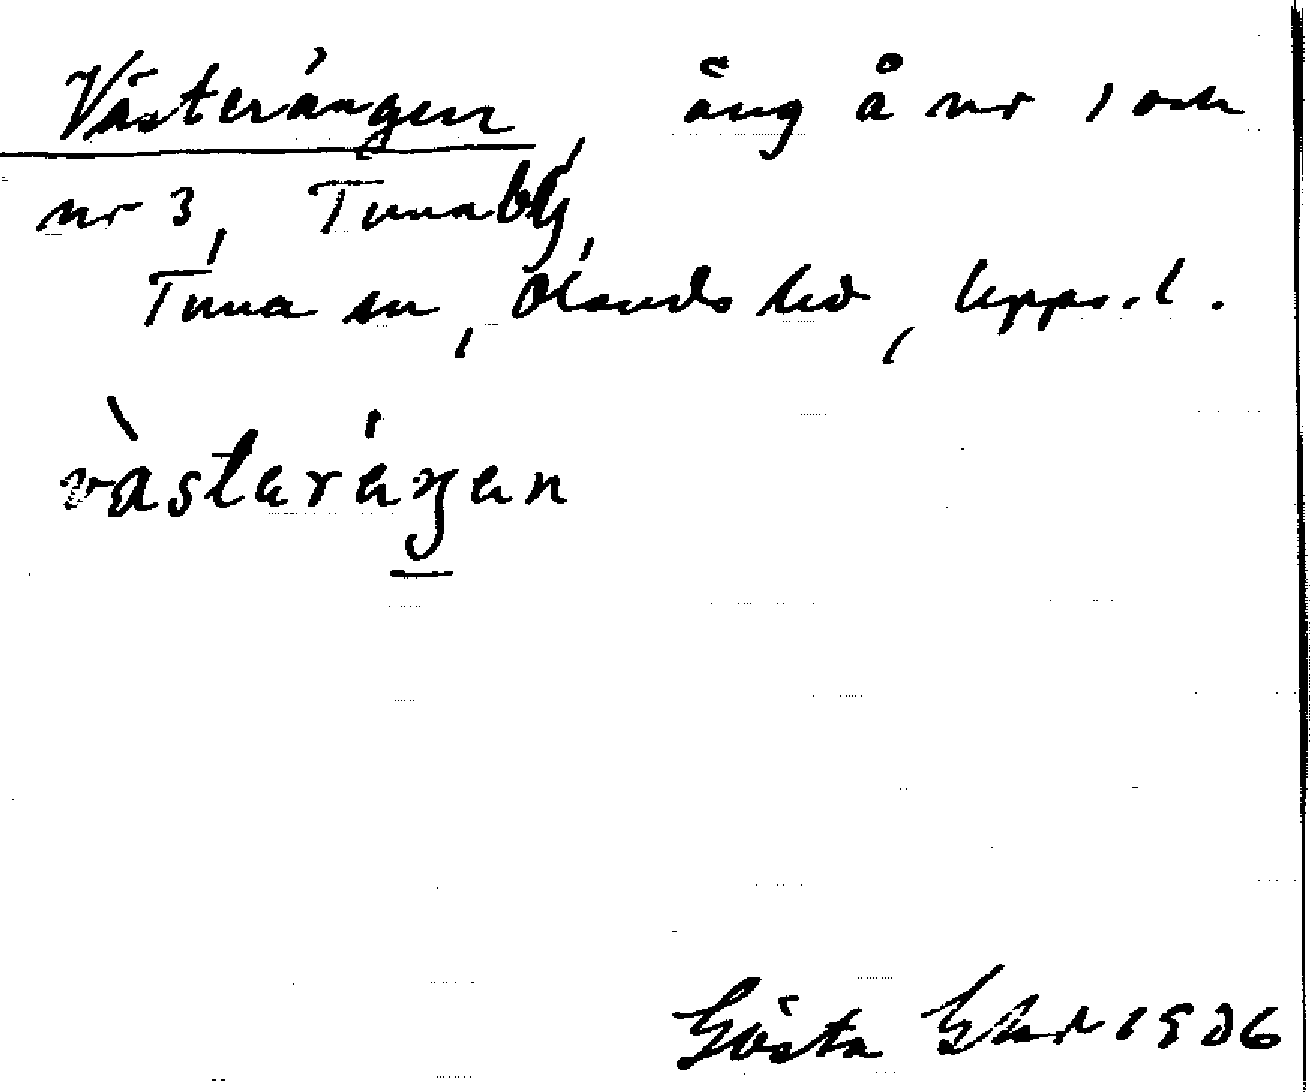 Västerängen, äng å nr 1 och
nr 3, Tunaby,
Tuna sn, Olands hd, Upps. l.
vàsteráŋen
Gösta 1906